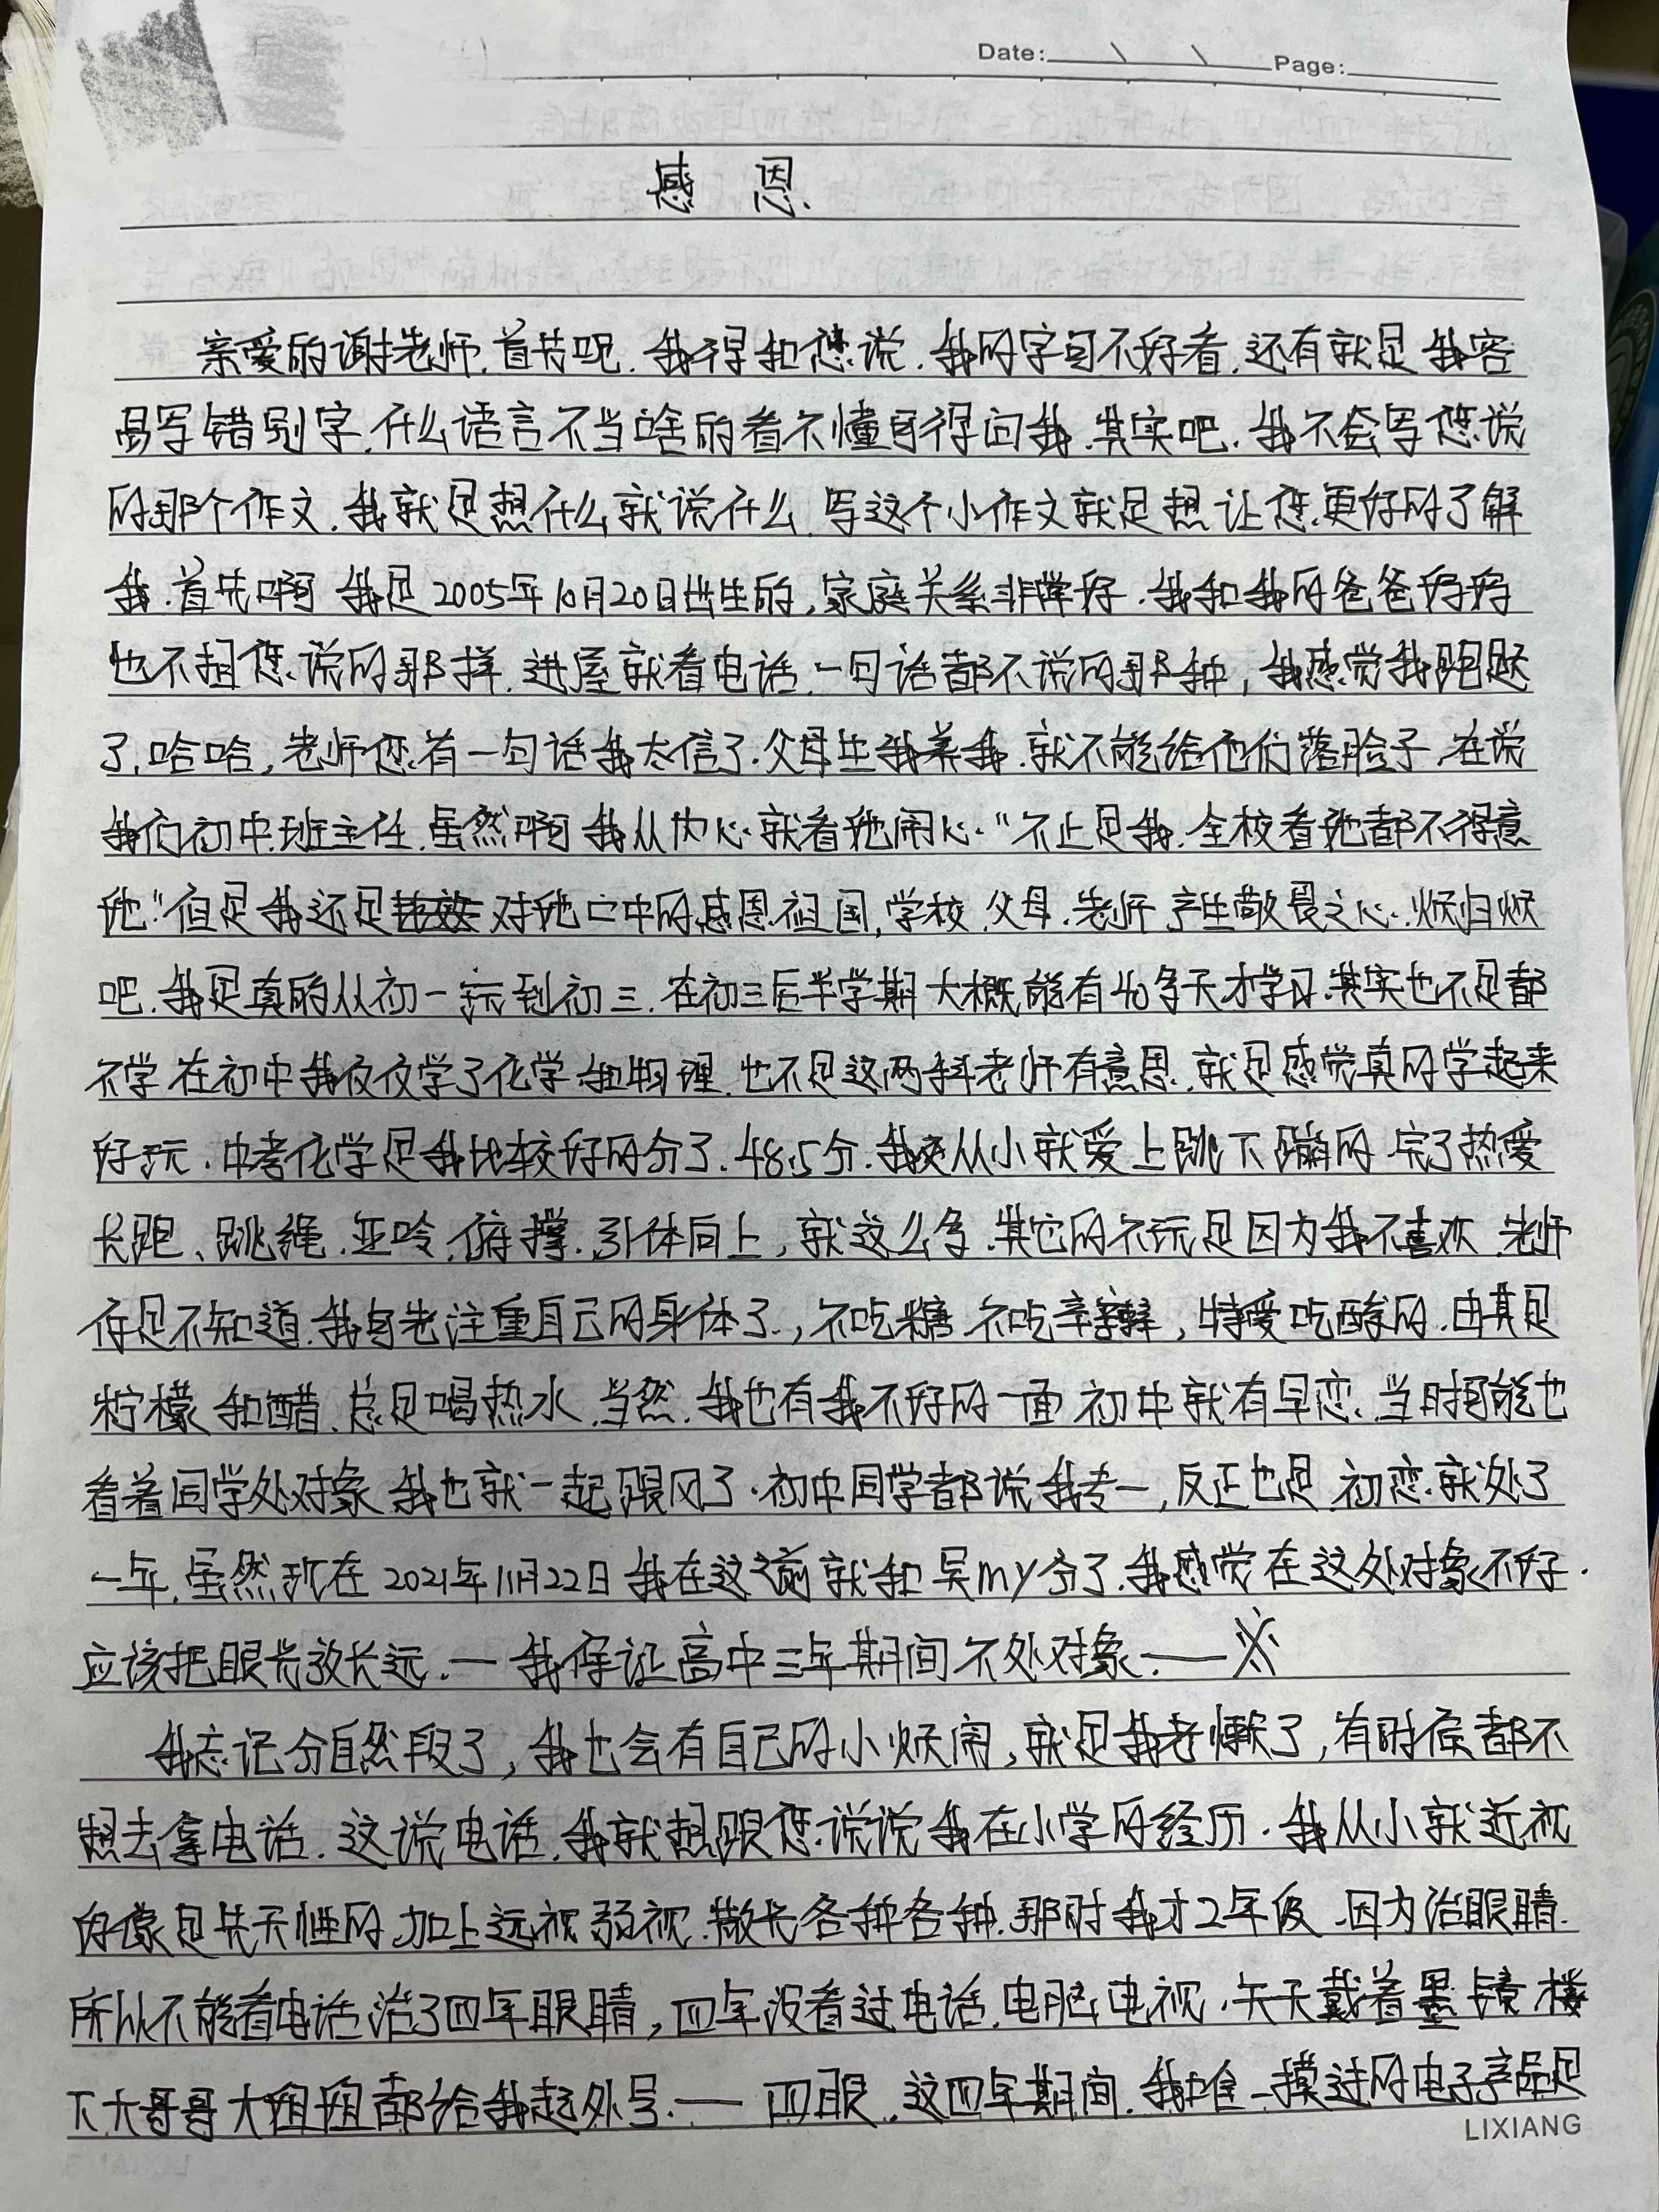 Date: \ \ Page:
感 恩.
亲爱的谢老师.首节吧.我得和您说.我的字写不好看.还有就是我容
易写错别字.什么语言不当啥的看不懂可得问我.其实吧.我不会写您说
的那个作文.我就是想什么就说什么.写这个小作文就是想让您更好的了解
我.首先啊 我是2005年10月20日出生的,家庭关系非常好.我和我的爸爸好好
也不相您说的那样.进屋就看电话.一句话都不说的那种,我感觉我跑题
了.哈哈,老师您有一句话我太信了.父母生我养我.就不能给他们落脸子.在说
我们初中班主任.虽然啊 我从内心就看她闹心."不止是我.全校看她都不得意
她."但是我还是 对她口中的感恩祖国,学校.父母.老师 产生敬畏之心.烦归烦
吧.我是真的从初一玩到初三.在初三后半学期 大概能有40多天才学习.其实也不是都
不学 在初中我仅仅学了化学和物理.也不是这两科老师有意思.就是感觉真的学起来
好玩.中考化学是我比较好的分了.48.5分.我 从小就爱上跳下蹦的.完了热爱
长跑、跳绳.亚呤.俯撑.引体向上,就这么多.其它的不玩是因为我不喜欢.老师
你是不知道.我自己老注重自己的身体了.,不吃糖.不吃辛辣,特爱吃酸的.由其是
柠檬和醋.总是喝热水.当然.我也有我不好的一面 初中就有早恋.当时可能也
看着同学处对象 我也就一起跟风了.初中同学都说我专一,反正也是.初恋.就处了
一年.虽然现在 2021年11月22日 我在这之前就和吴my分了.我感觉在这处对象不好.
应该把眼光放长远.一我保证高中三年期间不处对象.——※
我忘记分自然段了,我也会有自己的小烦闹,就是我老懒了,有时侯都不
想去拿电话.这说电话.我就想跟您说说我在小学的经历.我从小就近视
好像是先天性的.加上远视.弱视.散光各种各种.那时我才2年级.因为治眼睛.
所以不能看电话.治了四年眼睛,四年没看过电话.电脑.电视.天天戴着墨镜 楼
下大哥哥大姐姐都给我起外号.一四眼.这四年期间.我唯一摸过的电子产品是
LIXIANG